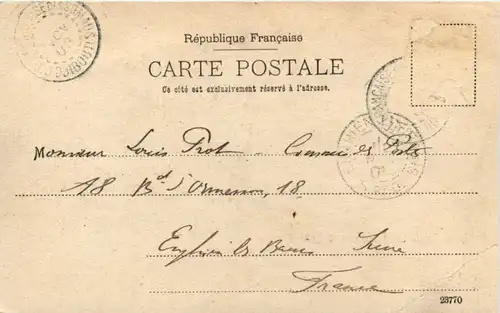 République Française
CARTE POSTALE
Ce côté est exclusivement réservé à l'adresse.
Monsieur Louis Prot - Commis des Postes
18 Bd d'Ormesson, 18
Enghien les Bains Seine
France
23770